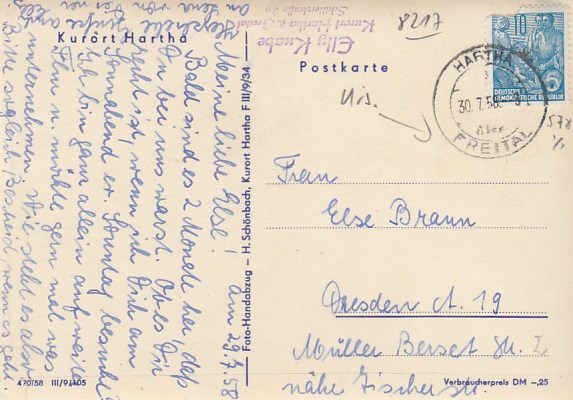 Kurort Hartha
Elly Knabe
Kurort Hartha u. Freital
Schillerstraße 29
8217
Postkarte
10
DEUTSCHE
DEMOKRATISCHE REPUBLIK
HARTHA
30.7.58
über
FREITAL
578
am 29.7.58
Meine liebe Else!
Bald sind es 2 Monate her, daß
Du bei uns warst. Ob es Dir
recht ist, wenn ich Dich am
Sonnabend od. Sonntag besuche?
Ich bin ganz allein auf weiter
Flur u. möchte gern mal was
unternehmen. Wie steht es also?
Bitte sogleich Bescheid, wenn es geht.
Herzlich
Foto-Handabzug — H. Schönbach, Kurort Hartha F III/9/34
Frau
Else Braun
Dresden A. 19
Müller Berset Str. I
nähe Fischer Str.
470/58 III/9/105
Verbraucherpreis DM -,25